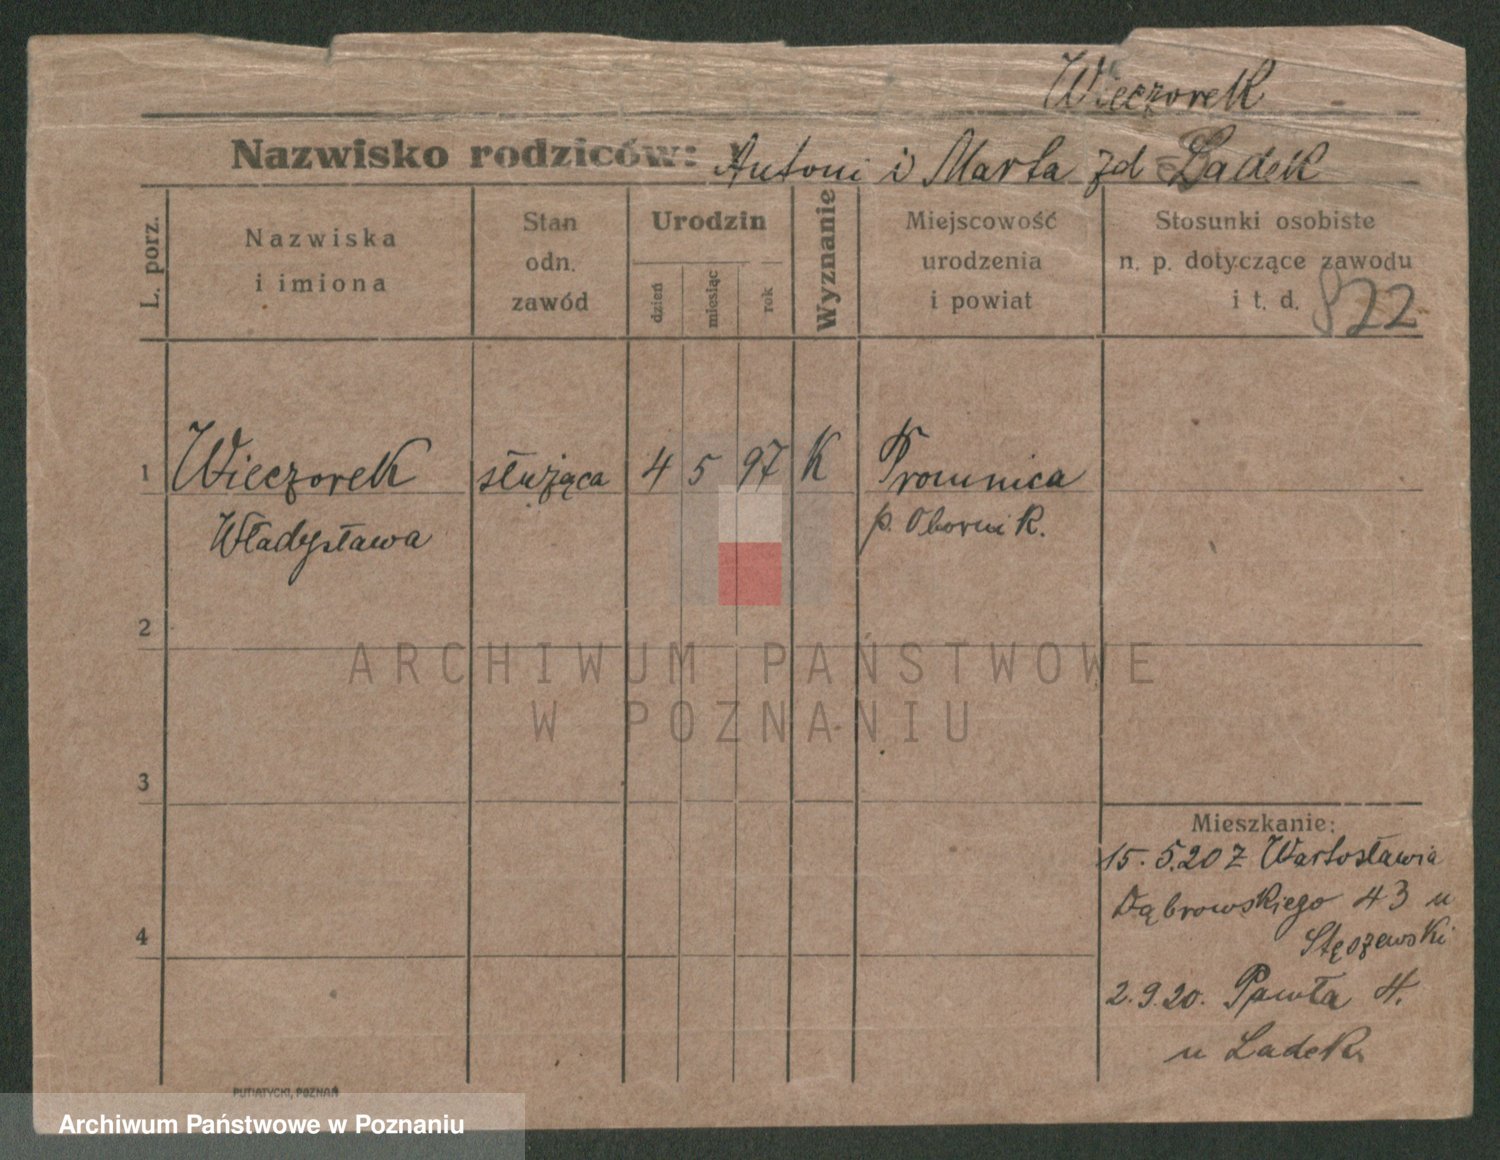 Wieczorek
Nazwisko rodziców: Antoni i Marta zd Ladek
L. porz.
Nazwiska
i imiona
Stan
odn.
zawód
Urodzin
dzień
miesiąc
rok
Wyznanie
Miejscowość
urodzenia
i powiat
Stosunki osobiste
n. p. dotyczące zawodu
i t. d. 822
1 Wieczorek służąca 4 5 97 K Promnica
Władysława p. Obornik.
2
ARCHIWUM PAŃSTWOWE
W POZNANIU
3
Mieszkanie:
15.5.20 z Wartosławia
Dąbrowskiego 43 u
Stęszewski
4
2.9.20. Pawła
u Ladek
PUTIATYCKI, POZNAŃ
Archiwum Państwowe w Poznaniu